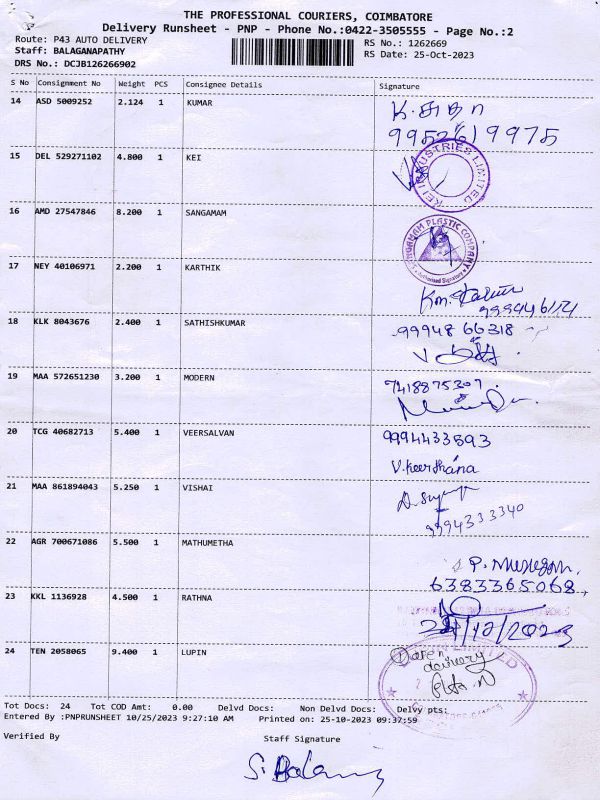 THE PROFESSIONAL COURIERS, COIMBATORE
Delivery Runsheet - PNP - Phone No.:0422-3505555 - Page No.:2
Route: P43 AUTO DELIVERY
Staff: BALAGANAPATHY
DRS No.: DCJB126266902
RS No.: 1262669
RS Date: 25-Oct-2023
S No Consignment No Weight PCS Consignee Details Signature
14 ASD 5009252 2.124 1 KUMAR
க.சுதா
9952619975
15 DEL 529271102 4.800 1 KEI
KEI INDUSTRIES LIMITED
16 AMD 27547846 8.200 1 SANGAMAM
SANGAMAM PLASTIC COMPANY
Authorised Signatory
17 NEY 40106971 2.200 1 KARTHIK
18 KLK 8043676 2.400 1 SATHISHKUMAR
9994866318
19 MAA 572651230 3.200 1 MODERN
7418875307
20 TCG 40682713 5.400 1 VEERSALVAN
9994433593
V.keerthana
21 MAA 861894043 5.250 1 VISHAI
9994333340
22 AGR 700671086 5.500 1 MATHUMETHA
P. Murugan
6383365068
23 KKL 1136928 4.500 1 RATHNA
24 TEN 2058065 9.400 1 LUPIN
LIMITED
open
delivery
Tot Docs: 24 Tot COD Amt: 0.00 Delvd Docs: Non Delvd Docs: Delvy pts:
Entered By :PNPRUNSHEET 10/25/2023 9:27:10 AM Printed on: 25-10-2023 09:37:59
Verified By Staff Signature